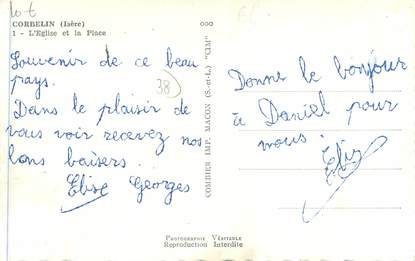 lot
CORBELIN (Isère)
1 - L'Eglise et la Place
Souvenir de ce beau
pays.
38
Dans le plaisir de
vous voir recevez nos
bons baisers.
Elise Georges
COMBIER IMP. MACON (S.-et-L.) "CIM"
Donne le bonjour
à Daniel pour
nous.
PHOTOGRAPHIE VÉRITABLE
Reproduction Interdite